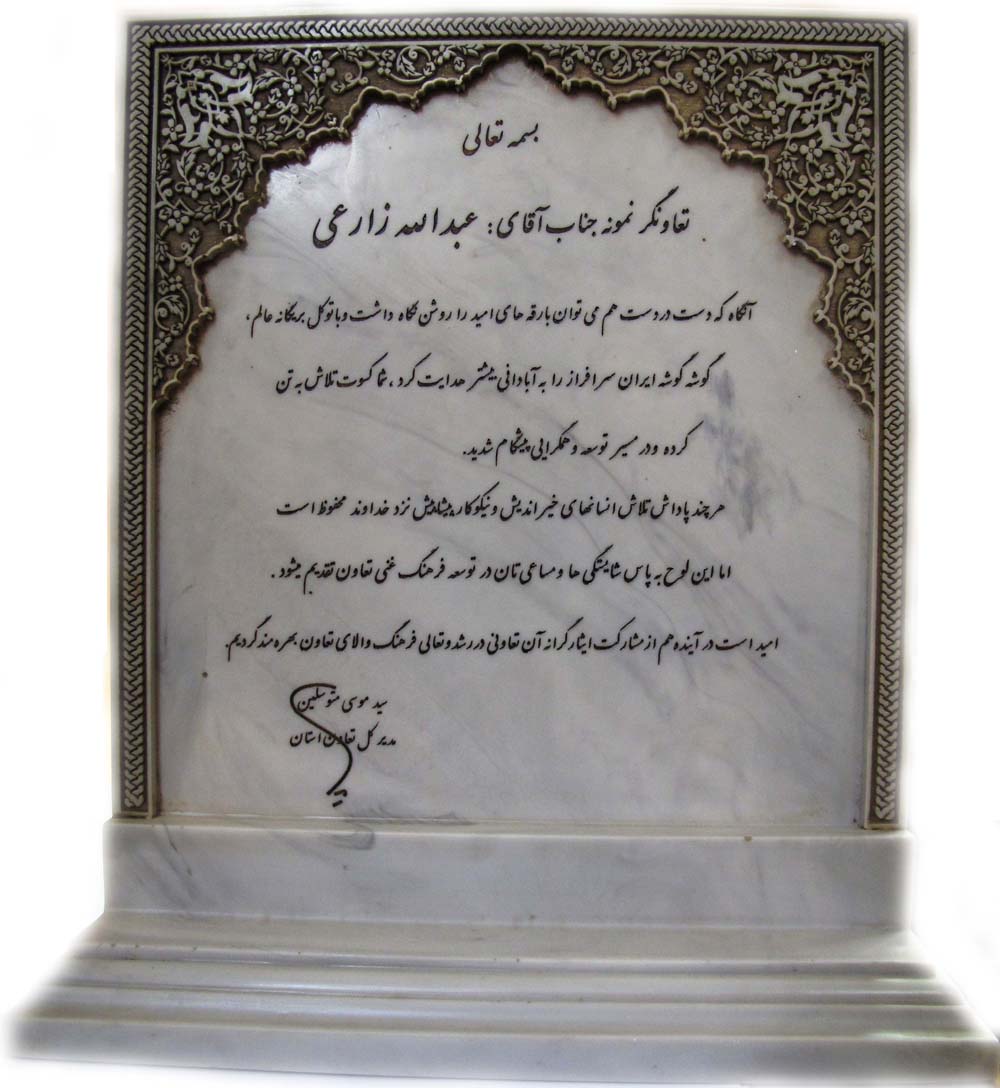 بسمه تعالی
تعاونگر نمونه جناب آقای: عبدالله زارعی
آنگاه که دست در دست هم می توان بارقه های امید را روشن نگاه داشت و با توکل بر یگانه عالم،
گوشه گوشه ایران سرافراز را به آبادانی بیشتر هدایت کرد، شما کسوت تلاش به تن
کرده و در مسیر توسعه و همگرایی پیشگام شدید.
هر چند پاداش تلاش انسانهای خیر اندیش و نیکوکار پیشاپیش نزد خداوند محفوظ است
اما این لوح به پاس شایستگی ها و مساعی تان در توسعه فرهنگ غنی تعاون تقدیم میشود.
امید است در آینده هم از مشارکت ایثارگرانه آن تعاونی در رشد و تعالی فرهنگ والای تعاون بهره مند گردیم.
سید موسی متوسلین
مدیر کل تعاون استان